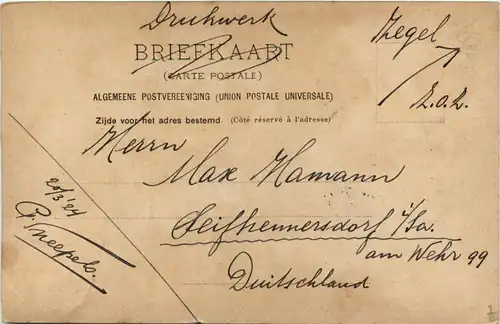 Drukwerk
BRIEFKAART
(CARTE POSTALE)
ALGEMEENE POSTVEREENIGING (UNION POSTALE UNIVERSELLE)
Zijde voor het adres bestemd (Côté réservé à l'adresse)
Zegel
z.o.z.
Herrn
Max Hamann
Seifhennersdorf i/Sa.
am Wehr 99
Duitschland
20/3 '04